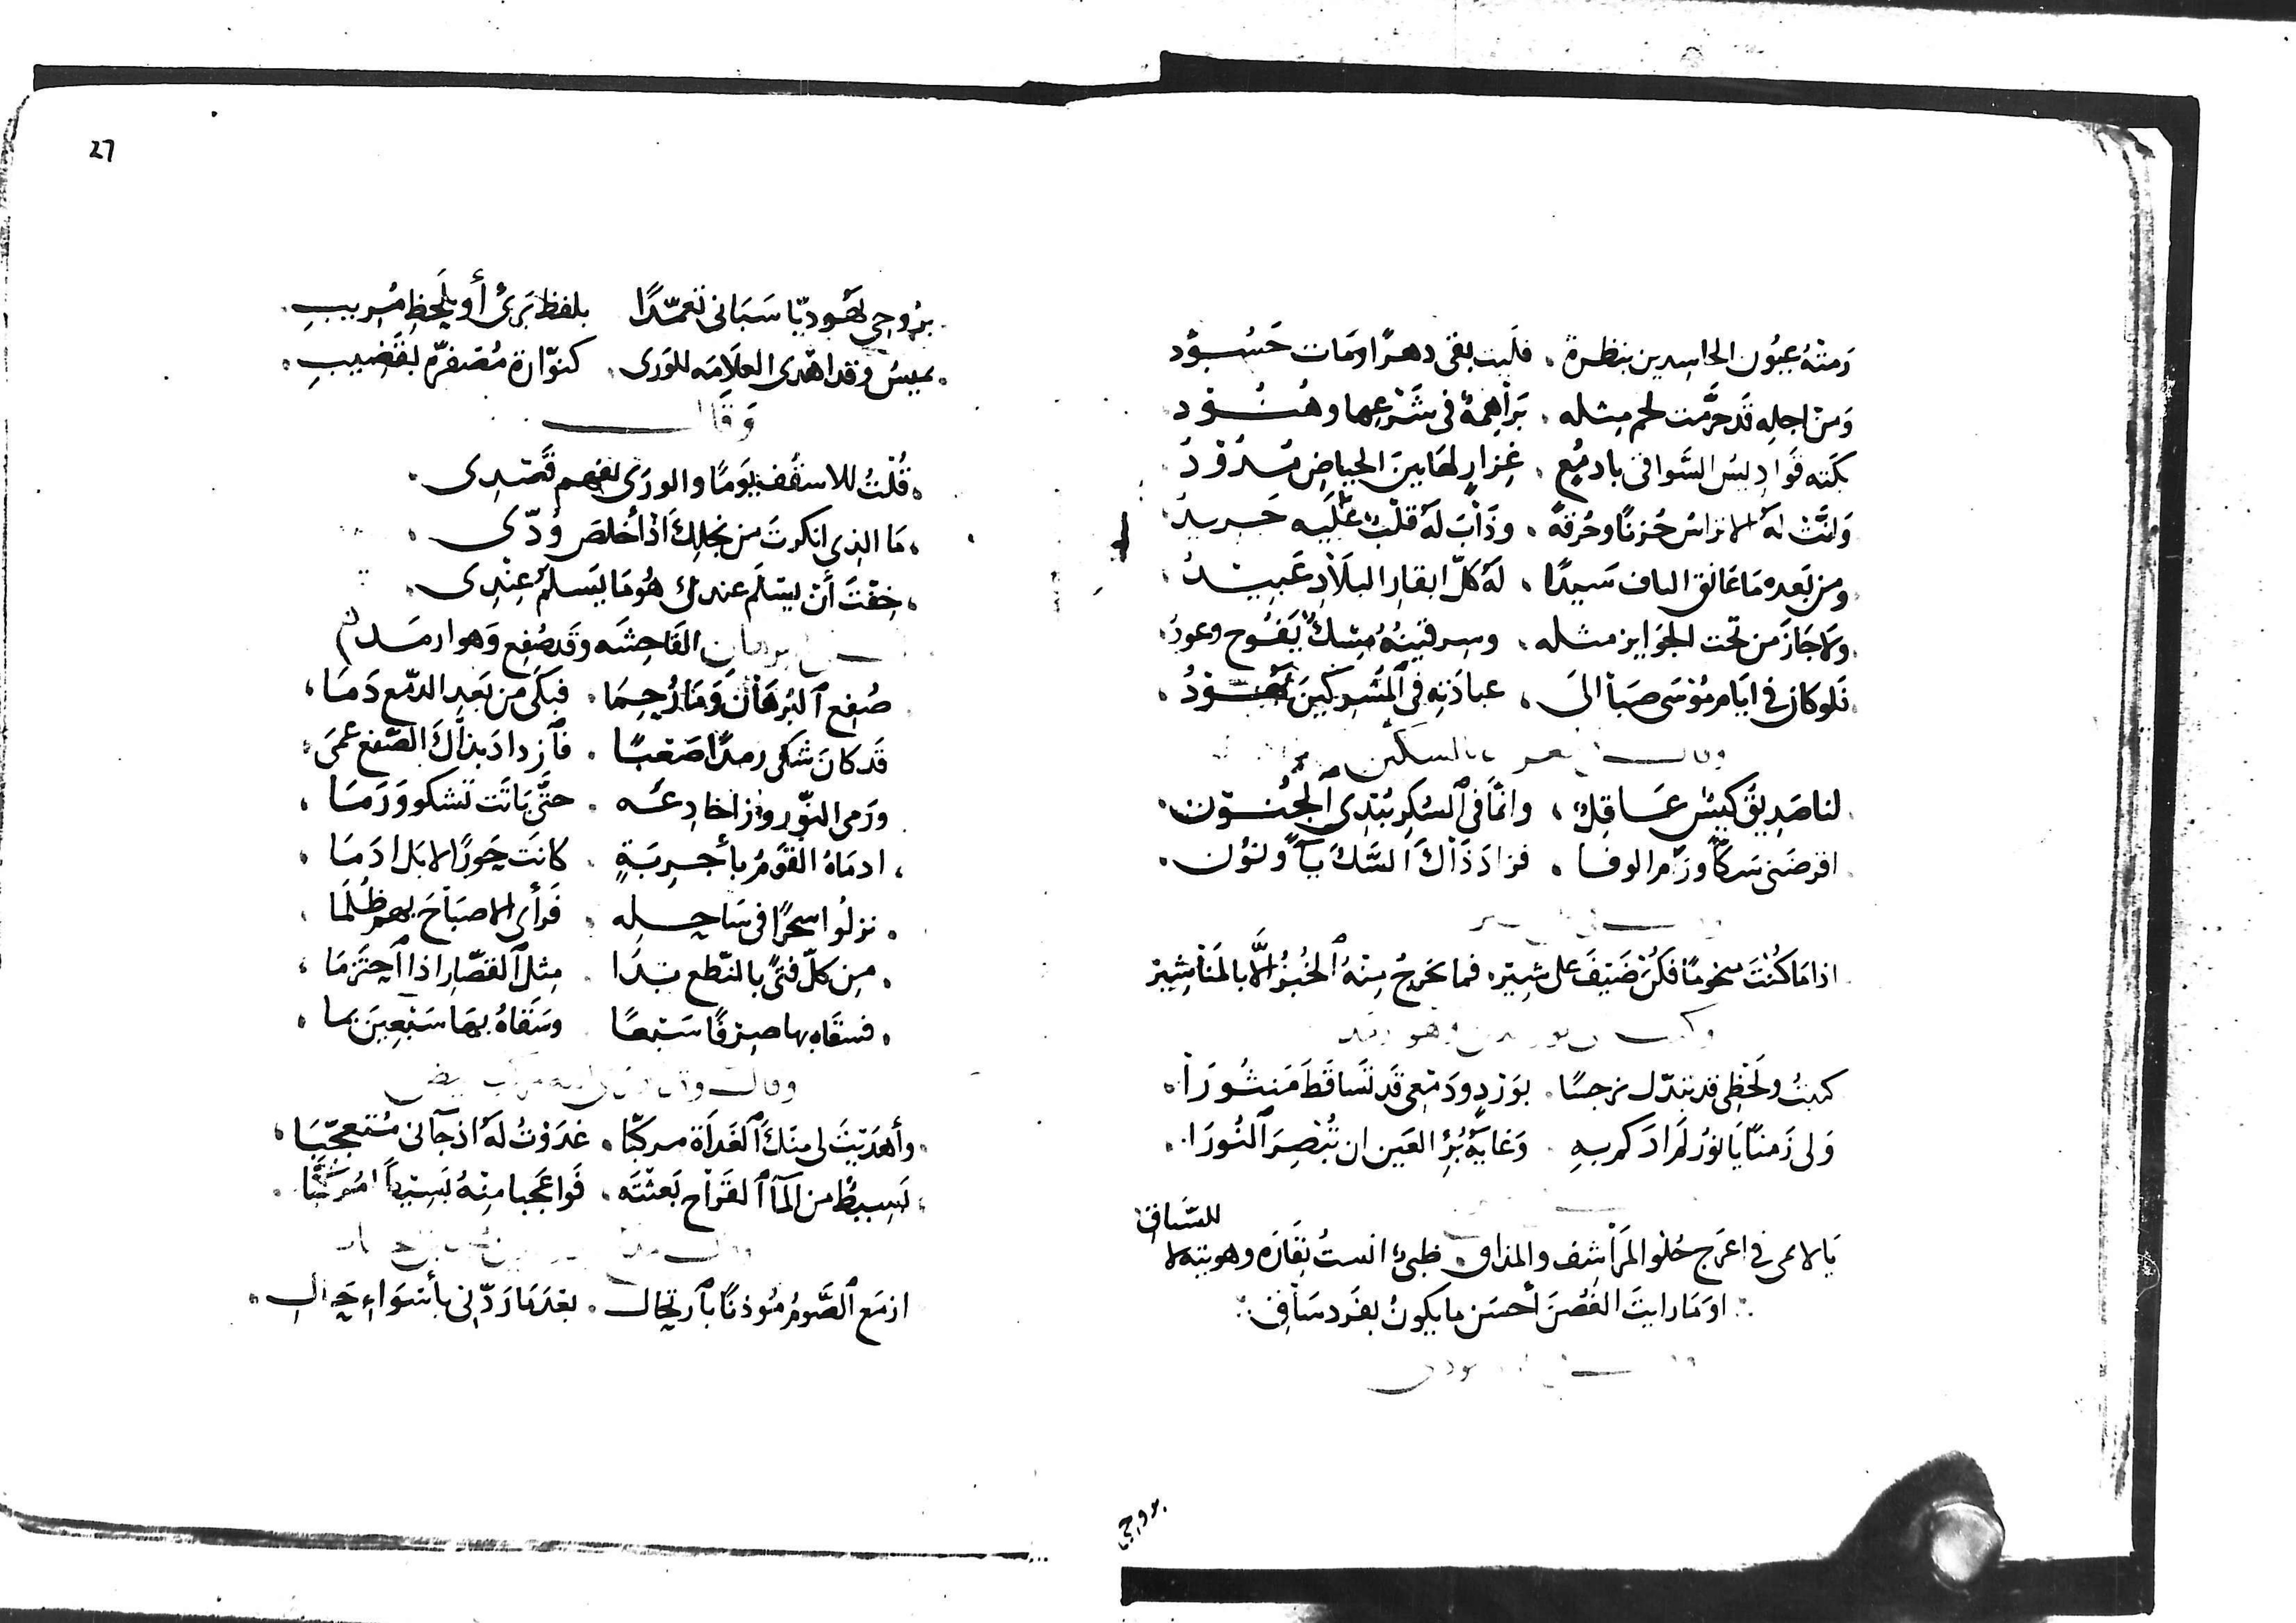 رَمتْهُ عيُون الحاسِدين بنظرة . فلَيت بقى دهرًا ومَات حَسُوْد
وَمن اجلِه قَد حَرَّمت لحم مِثله . بَرَاهِمَةٌ فى شَرْعِها وهُنُوْد
بكَته قَوادِيسُ السَّواقى بادمُع . غِزارٍ لهَا بينَ الحِياضِ مُدُوْدُ
وَانَّتْ لهُ الاتراسُ حُزنًا وحُرقةً . وذَابَ لهُ قلْبٌ عَليه حَديدُ
ومن بَعده مَا عَانق الناف سَيدًا . لهُ كلّ ابقارِ البلَادِ عَبيْدُ
ولا جَازَ من تحت الجَوايز مثله . وسِرقينهُ مِسْكٌ يَفُوح وعودُ
فَلو كان فى ايَام مُوْسَى صَبَا الىَ . عبادَتِهِ فى ٱلمُشركينَ يَهُوْدُ
لنا صَدِيقٌ كَيِّسٌ عَاقِلٌ . وانمَّا فى ٱلسُكرِ يُبْدِى ٱلجُنُون
اقرضَنى سَكًّا ورَام الوفا . فزادَ ذَاكَ ٱلسَّكَّ يآءً ونوُن
اذا مَا كُنْتَ مخومًا فكُنْ ضَيْفَ على شِيْر . فما يخرجُ مِنْهُ ٱلخُبْزُ إلَّا بالمَنَاشِيْر
كتبتُ ولَحْظِى قد تبَدّل نرجسًا . بوَرْدٍ ودَمْعِى قَد تَسَاقَطَ مَنثُورَا
وَلى زَمنٌ يَا نورُ لم ارَكم بهِ . وَغايَةُ بُرْءِ العَين ان تُبْصِرَ ٱلنُورَا
يَا لائمى فى اعرَج حُلو المَرَاشِف والمذاق . ظبىٌ انستُ نِفَارَه وهو يتيه لا
للسَّباق
اوَمَا رايتَ الغُصْنَ أحسَن ما يكونُ بفَرد سَاقِ
بروحِى
27
بِرُوحِى يَهُوديًّا سَبَانى تعَمّدًا بلفظٍ بَرىْءٍ أو بلَحظٍ مُرِيبِ
يمِيسُ وقد اهْدى العلَامَه للوَرى . كنوّارة مُصْفرّه بقَضِيبِ
وَقَالَ
قُلْتُ للاسقُف يَوْمًا والورَى تفهم قَصْدِى
مَا الذى انكرتَ من نجلِكَ اذْ أخلَصَ وُدّى
خِفْتَ أنْ يسْلَم عندى هُو مَا يَسلمُ عِنْدِى
الفَاحِشَه وقَد صُفِع وَهوا رمَد
صُفِع ٱلبُرهَانُ وَمَا رُحِمَا . فبكَى من بَعدِ الدّمعِ دَمَا
قَد كانَ شكى رمدًا صَعْبًا . فٱزدادَ بذاكَ الصَّفع عمَى
ورَمى النّورُوز اخادِعَه . حتَّى بَاتَت تَشكو وَرَمَا
ادمَاهُ القَومُ بأجْرِبَةٍ . كانَت جُورًا لا بَل ادَمَا
نزلُوا سحَرًا فى سَاحِله . فَرأَى الاصبَاحَ بهم ظُلَمَا
مِن كلّ فتًى بالنّطع بَدَا . مِثلَ ٱلقصّارِ اذا ٱحتَزَمَا
فسقَاه بها صِرْفًا سَبْعًا وسَقَاهُ بهَا سَبْعِينَ بما
وأهدَيْتَ لى منكَ ٱلغَداة مركبًّا . غدَوْتُ لهُ اذ جآنى مُتعجِّبَا
بَسِيطٌ من ٱلمآ ٱلقَرَاحِ بَعثْتَه . فَوا عَجَبا مِنْهُ بَسِيْطًا مُركَّبَا
ازمَع ٱلصَّومُ مُوذنًا بٱرتحال . بعْدَ مَا رَدّنى بأسْوَاءِ حَالِ